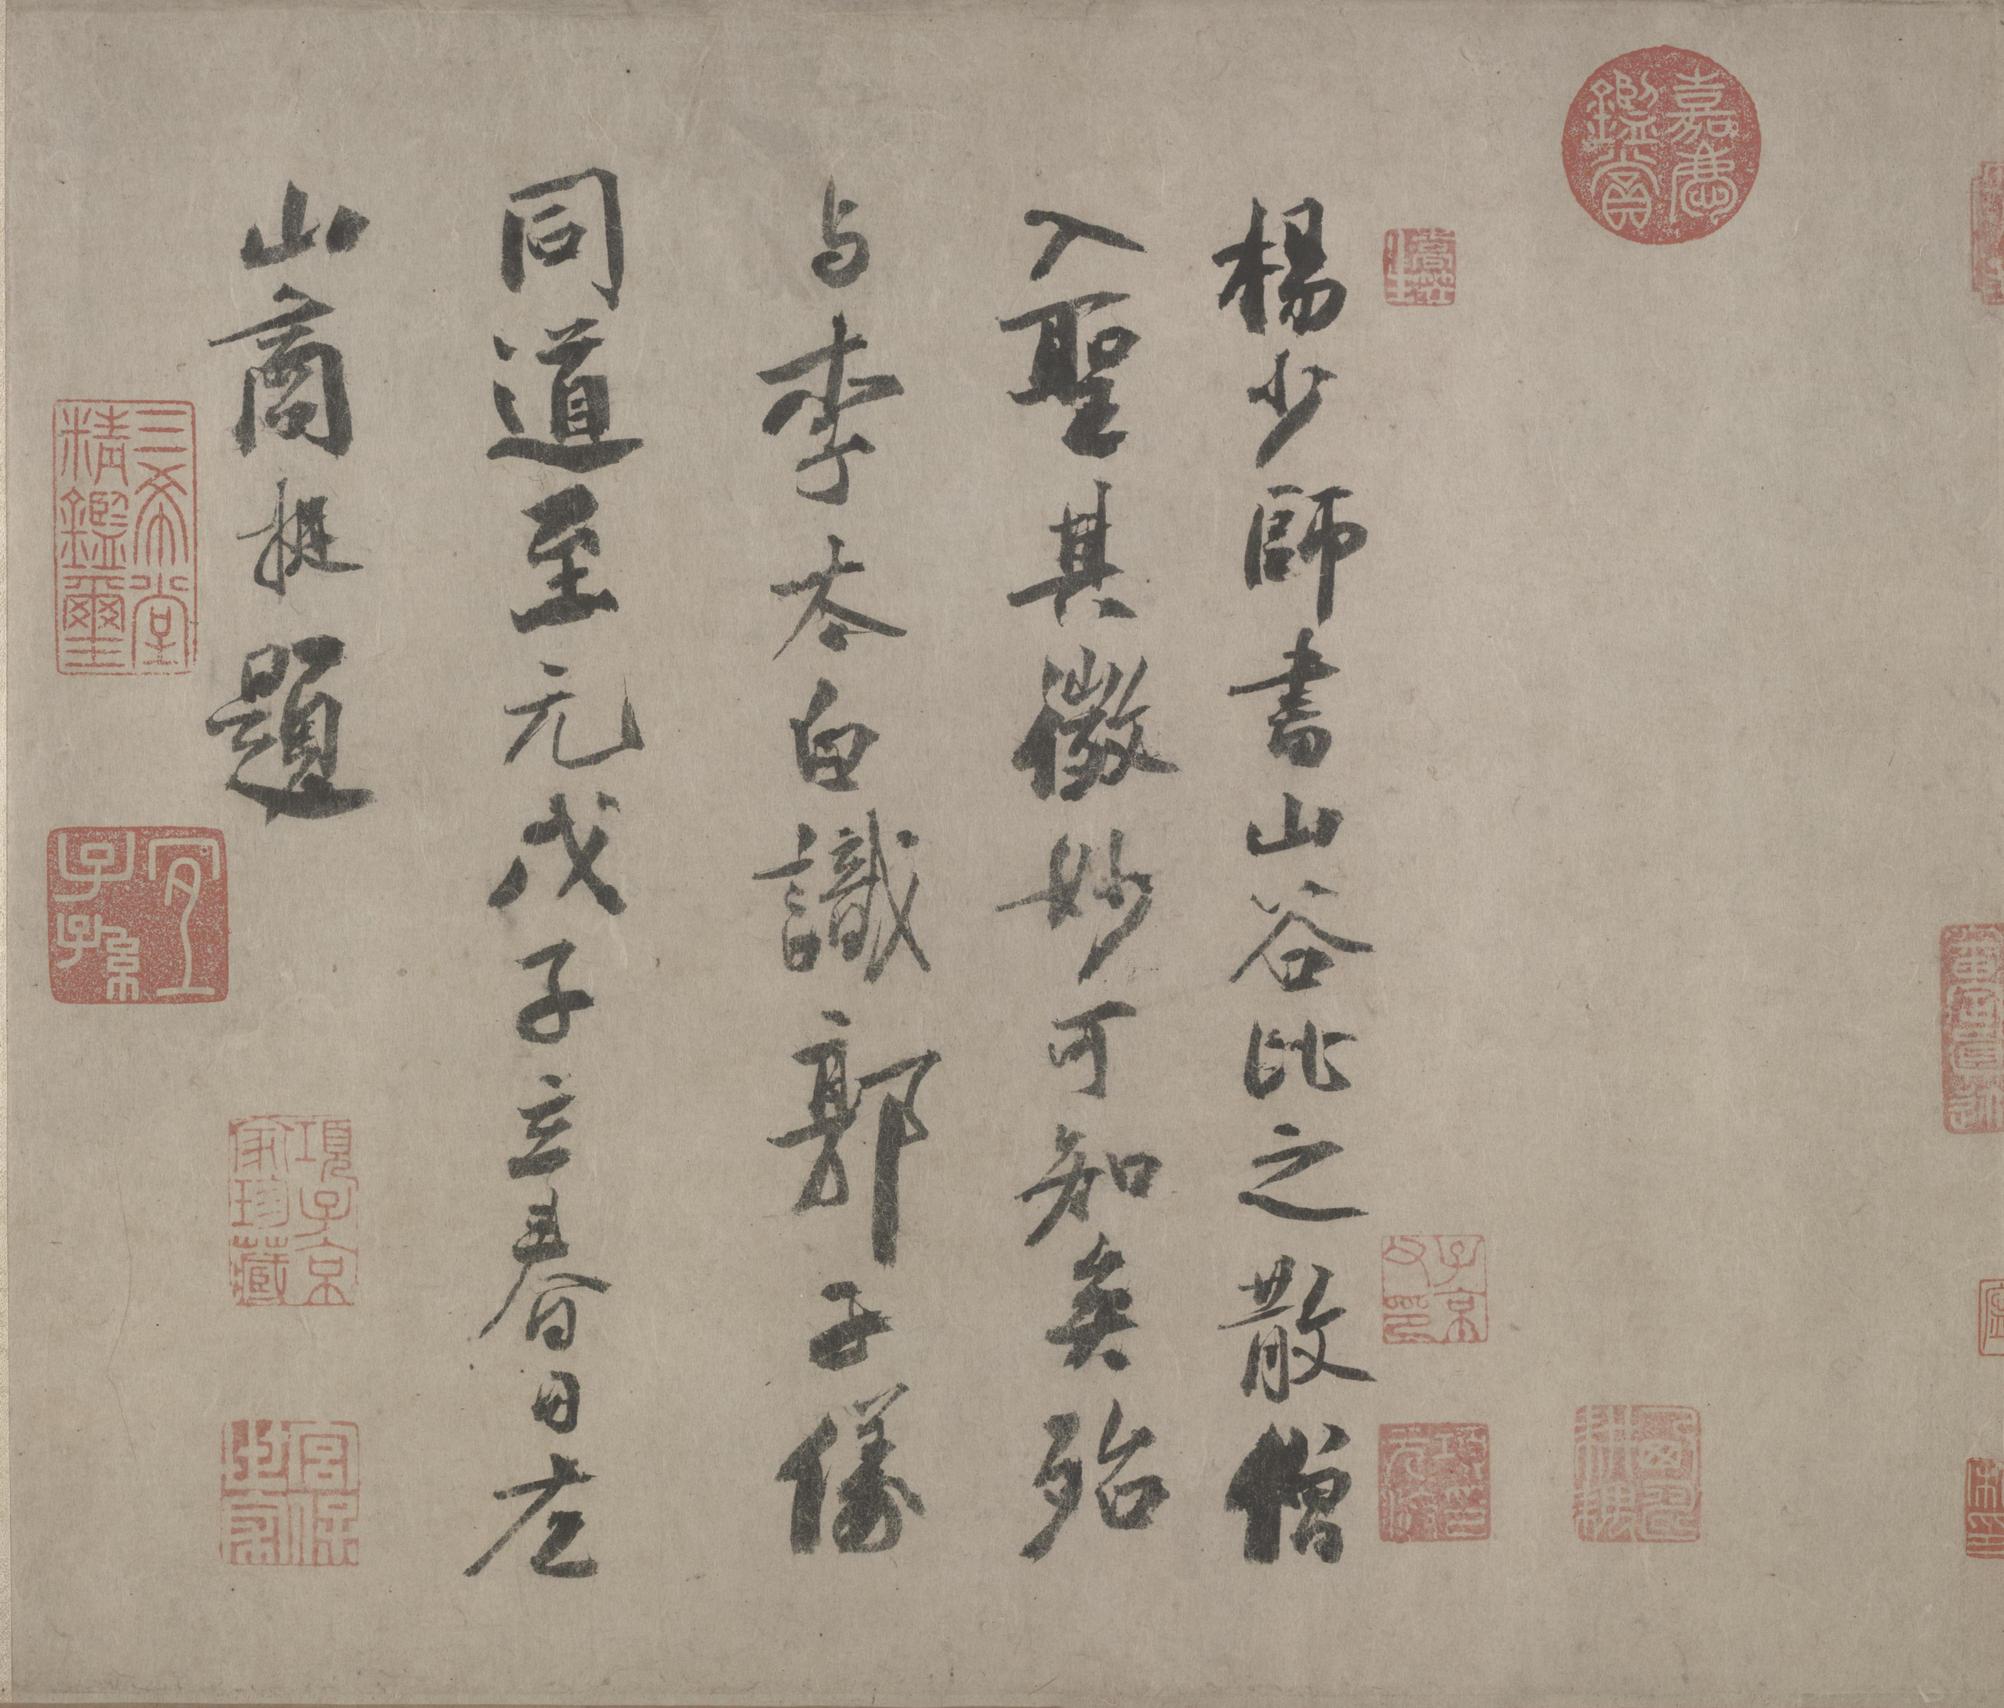 楊少師書山谷比之散僧
入聖其微妙可知矣殆
与李太白識郭子儀
同道至元戊子立春日左
山商挺題
嘉慶鑑賞
三希堂精鑑璽
宜子孫
項子京家珍藏
宮保世家
子京父印
項元汴印